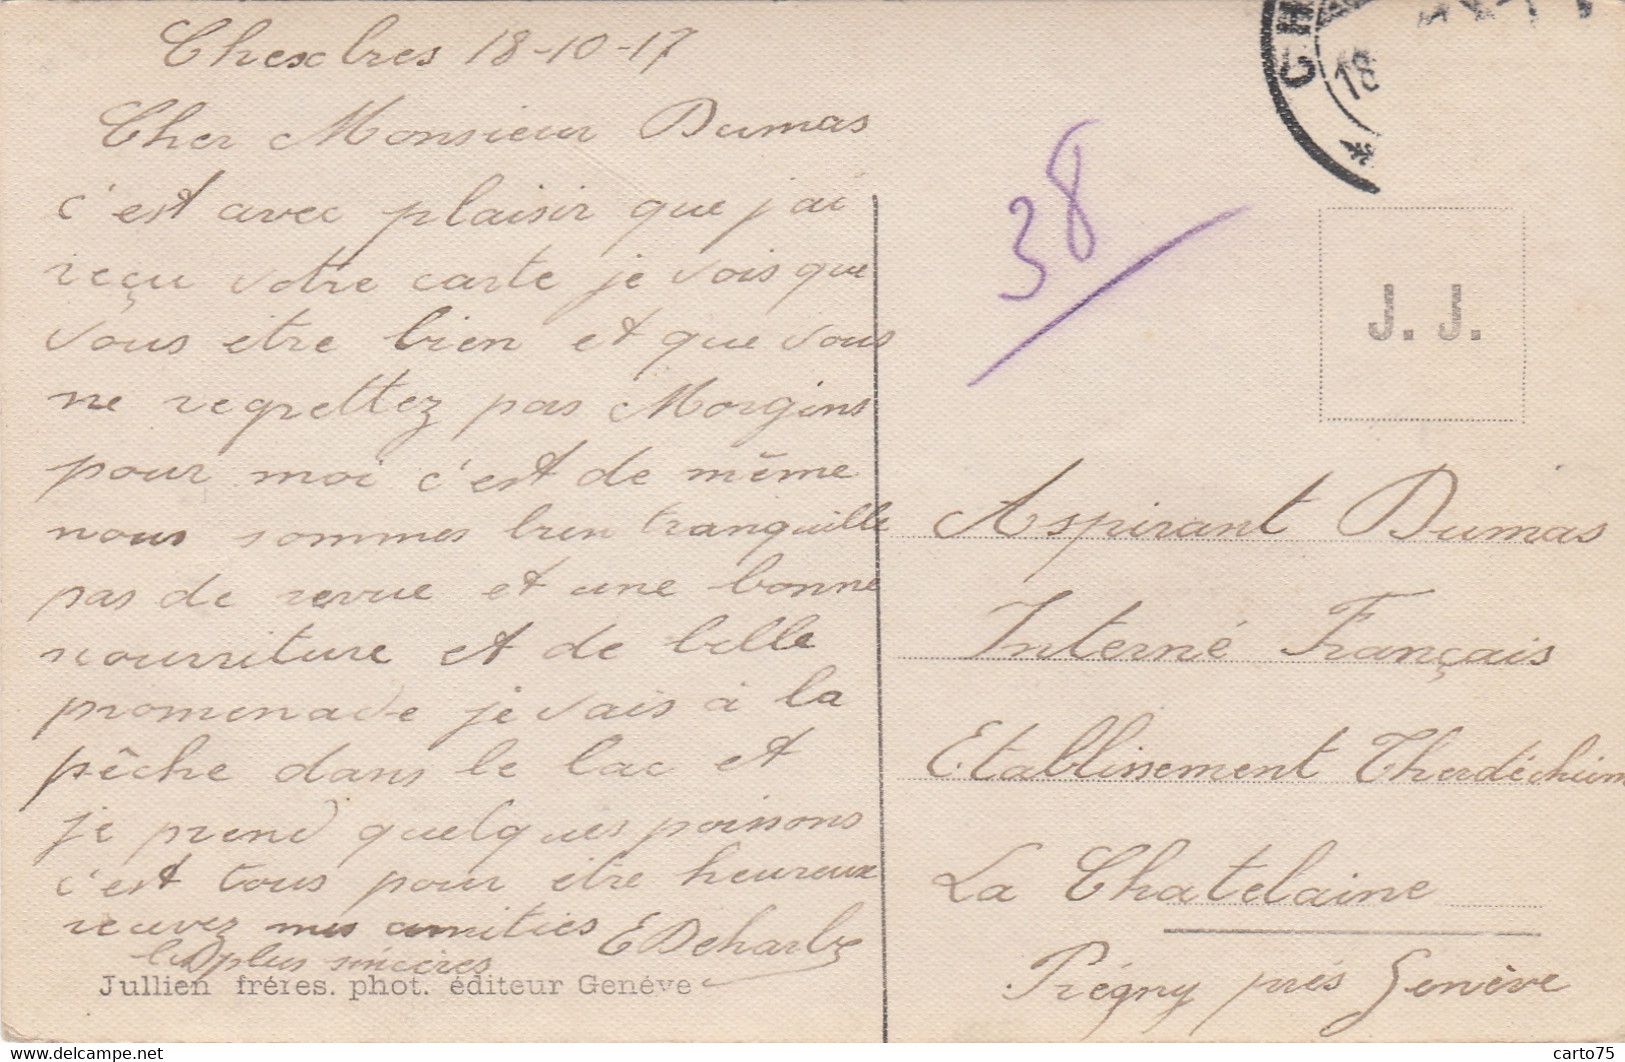 Chexbres 18-10-17
Cher Monsieur Dumas
c'est avec plaisir que j'ai
reçu votre carte je vois que
vous etre bien et que vous
ne regrettez pas Morgins
pour moi c'est de même
nous sommes bien tranquille
pas de revue et une bonne
nourriture et de belle
promenade je vais à la
pêche dans le lac et
je prend quelques poissons
c'est tous pour etre heureux
recevez mes amitiés
les plus sincères
Jullien fréres. phot. éditeur Genéve
CH
18
38
J. J.
Aspirant Dumas
Interné Français
Etablissement
La Chatelaine
Prégny prés Genève
carto75